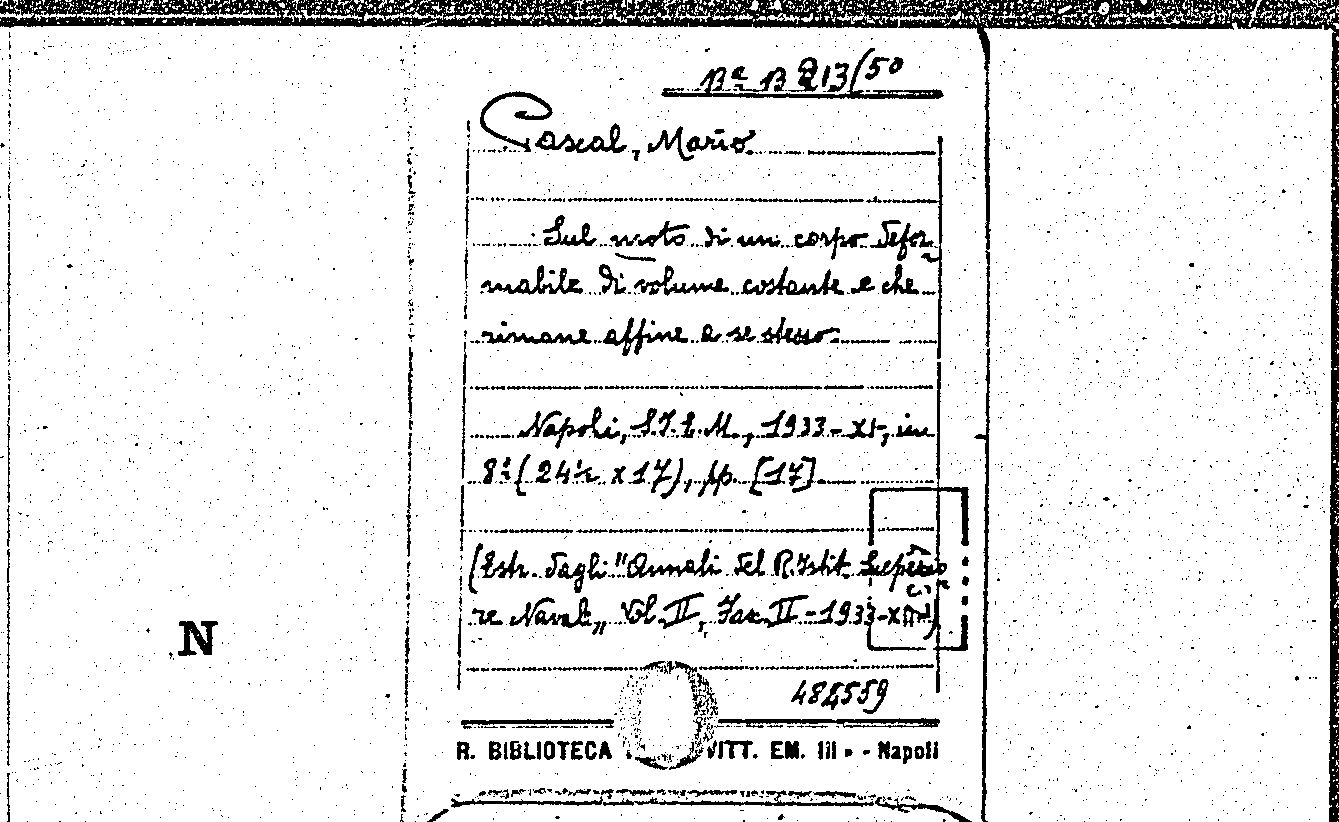 Ba B 213/50
Pascal, Mario
Sul moto di un corpo defor-
mabile di volume costante e che
rimane affine a se stesso.
Napoli, S.I.E.M., 1933-XI, in
8º (24½ x 17), pp. [17]
(Estr. dagli "Annali del R. Istit. Superio
re Navale,, Vol. II, Fasc. II-1933-XI)
N
R. BIBLIOTECA VITT. EM. III » - Napoli